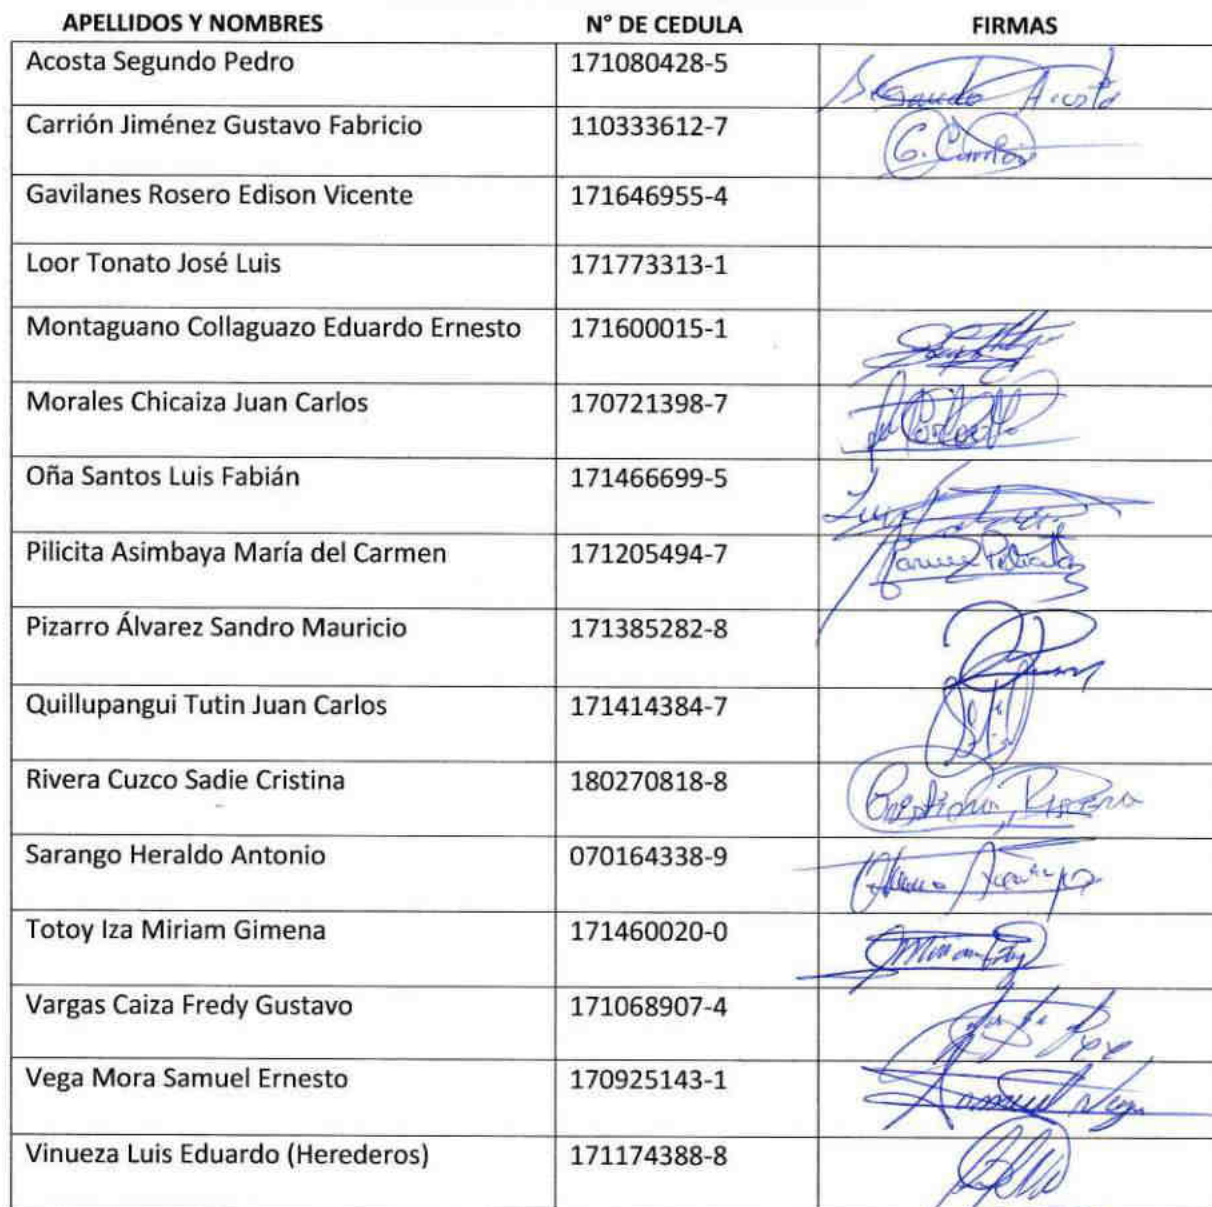 APELLIDOS Y NOMBRES N° DE CEDULA FIRMAS
Acosta Segundo Pedro 171080428-5 Segundo Acosta
Carrión Jiménez Gustavo Fabricio 110333612-7 G. Carrión
Gavilanes Rosero Edison Vicente 171646955-4
Loor Tonato José Luis 171773313-1
Montaguano Collaguazo Eduardo Ernesto 171600015-1
Morales Chicaiza Juan Carlos 170721398-7
Oña Santos Luis Fabián 171466699-5
Pilicita Asimbaya María del Carmen 171205494-7 Carmen Pilicita
Pizarro Álvarez Sandro Mauricio 171385282-8
Quillupangui Tutin Juan Carlos 171414384-7
Rivera Cuzco Sadie Cristina 180270818-8 Cristina Rivera
Sarango Heraldo Antonio 070164338-9
Totoy Iza Miriam Gimena 171460020-0 Miriam Totoy
Vargas Caiza Fredy Gustavo 171068907-4
Vega Mora Samuel Ernesto 170925143-1 Samuel Vega
Vinueza Luis Eduardo (Herederos) 171174388-8